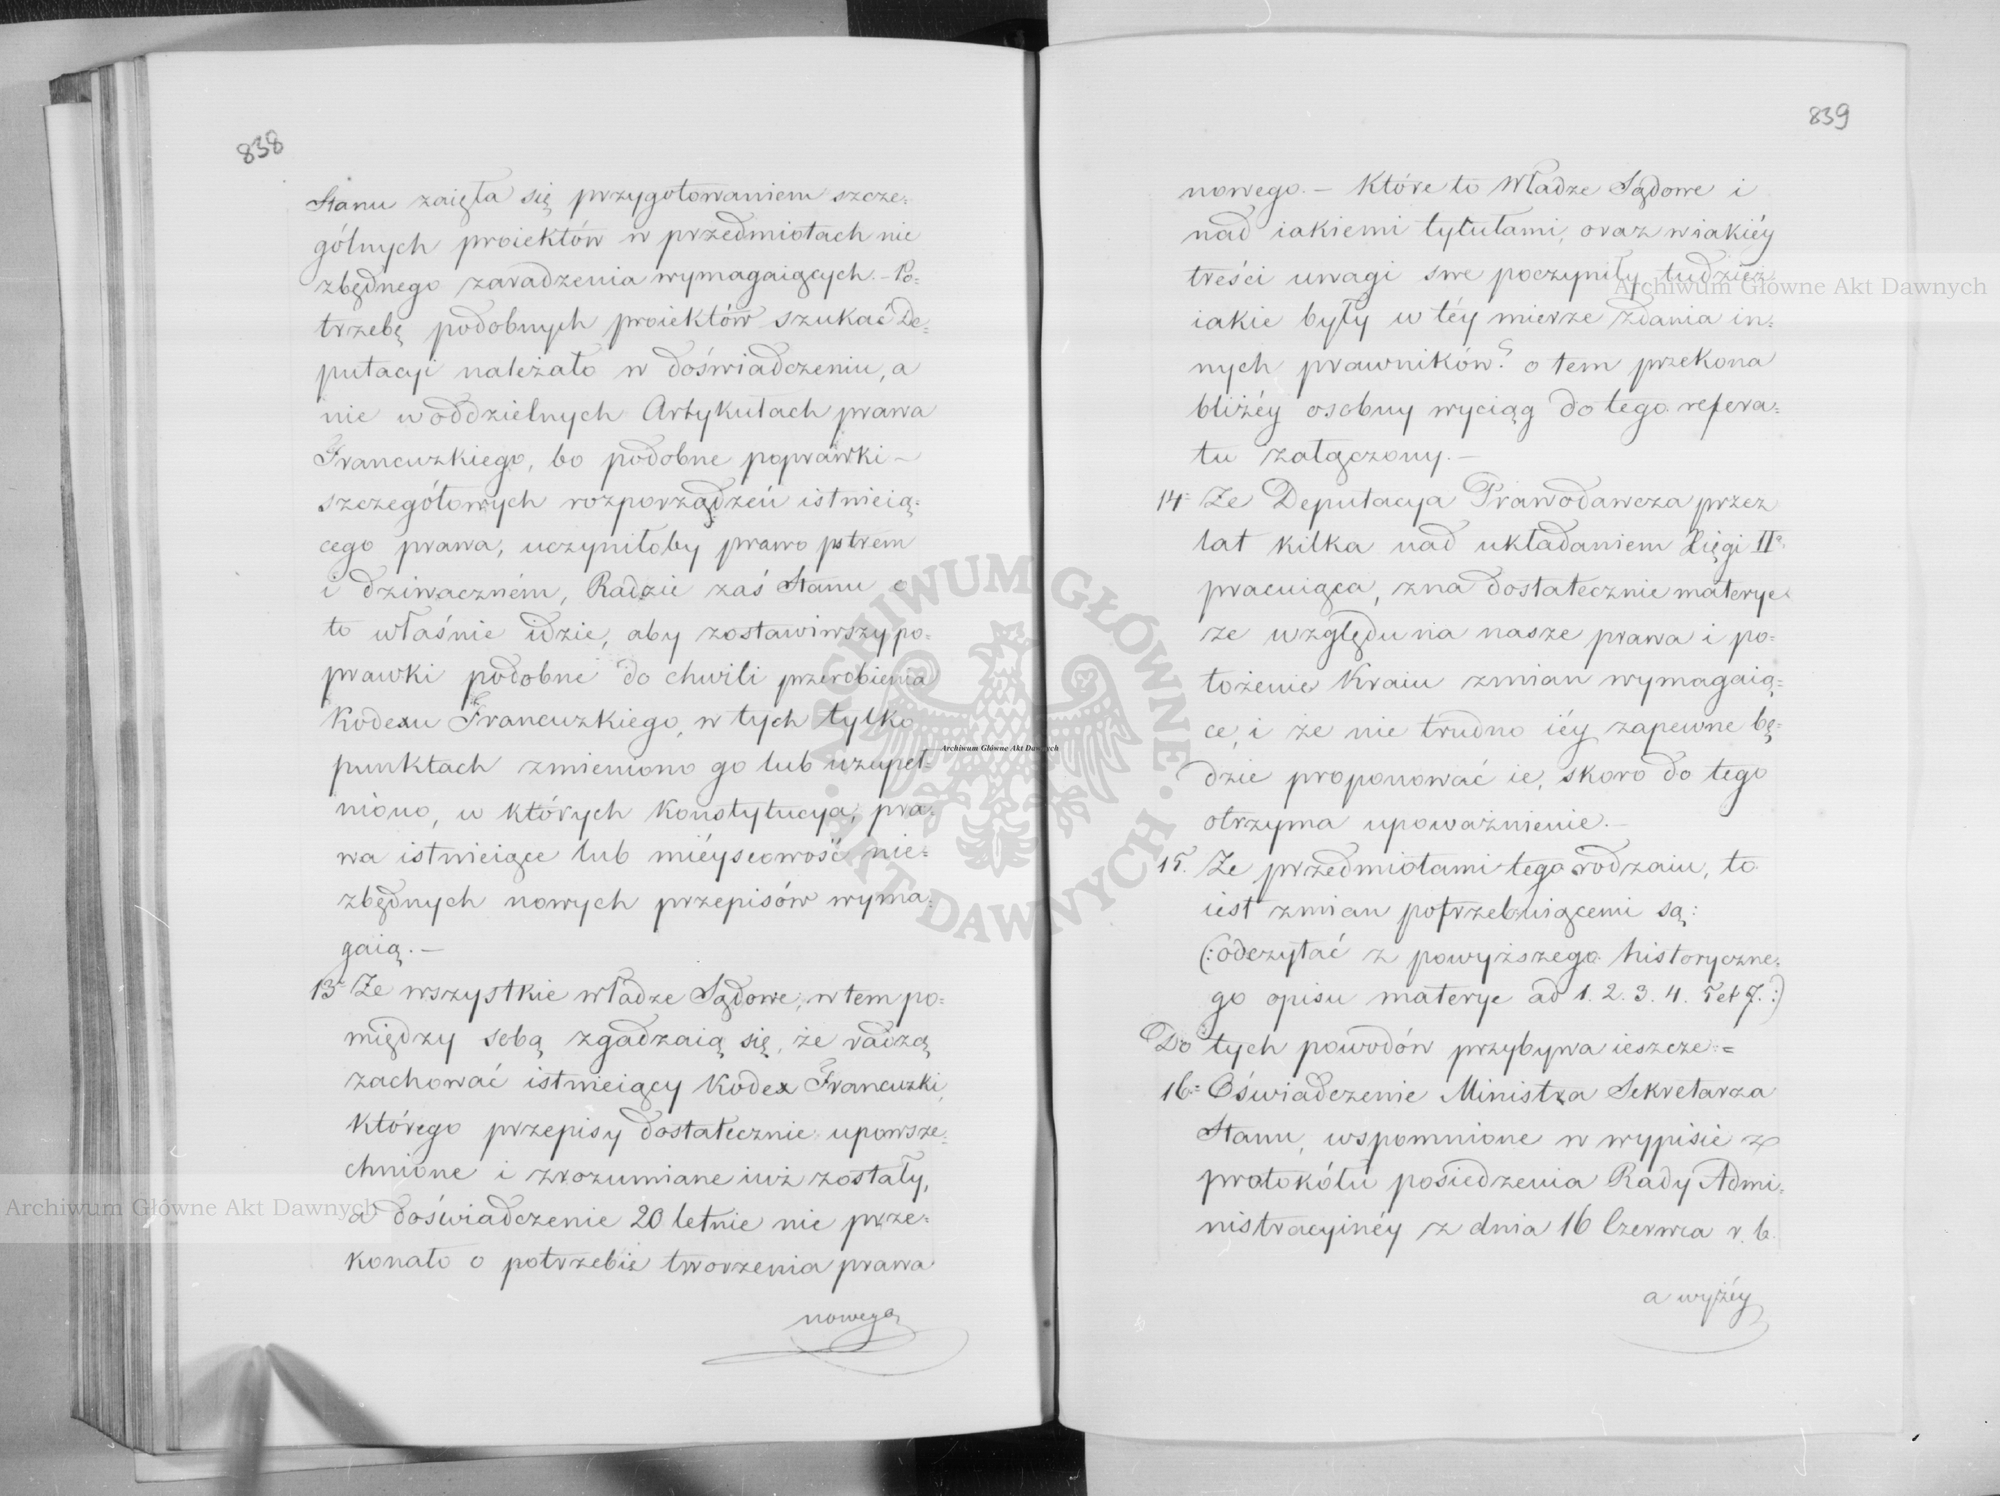 838
Stanu zaięła się przygotowaniem szcze-
gólnych proiektów w przedmiotach nie
zbędnego zaradzenia wymagaiących. – Po-
trzebę podobnych proiektów szukać De-
putacyi należało w doświadczeniu, a
nie w oddzielnych Artykułach prawa
Francuzkiego, bo podobne poprawki –
szczegółowych rozporządzeń istnieią-
cego prawa, uczyniłoby prawo pstrem
i dziwaczném, Radzie zaś Stanu o
to właśnie idzie, aby zostawiwszy po-
prawki podobne do chwili przerobienia
Kodexu Francuzkiego, w tych tylko
punktach zmieniono go lub uzupeł-
niono, w których Konstytucya, pra-
wa istnieiące lub miéyscowość nie-
zbędnych nowych przepisów wyma-
gaią. –
13. Że wszystkie władze Sądowe, w tem po-
między sobą zgadzaią się, że radzą
zachować istnieiący Kodex Francuzki,
którego przepisy dostatecznie upowsze-
chnione i zrozumiane iuż zostały,
a doświadczenie 20 letnie nie prze-
konało o potrzebie tworzenia prawa
nowego
839
nowego. – Które to Władze Sądowe i
nad iakiemi tytułami, oraz w iakiéy
treści uwagi swe poczyniły, tudzież
iakie były w téy mierze zdania in-
nych prawników? o tem przekona
bliżéy osobny wyciąg do tego refera-
tu załączony. –
14. Że Deputacya Prawodawcza przez
lat kilka nad układaniem Xięgi IIᵉ
pracuiąca, zna dostatecznie materye
ze względu na nasze prawa i po-
łożenie Kraiu zmian wymagaią-
ce, i że nie trudno iéy zapewne bę-
dzie proponować ie, skoro do tego
otrzyma upoważnienie. –
15. Że przedmiotami tego rodzaiu, to
iest zmian potrzebuiącemi są:
(: odczytać z powyższego historyczne-
go opisu materye ad 1. 2. 3. 4. 5 et 7. :)
Do tych powodów przybywa ieszcze: =
16. Oświadczenie Ministra Sekretarza
Stanu, wspomnione w wypisie z
protokółu posiedzenia Rady Admi-
nistracyinéy z dnia 16 Czerwca r. b.
a wyżéy
Archiwum Główne Akt Dawnych
Archiwum Główne Akt Dawnych
Archiwum Główne Akt Dawnych
ARCHIWUM GŁÓWNE AKT DAWNYCH